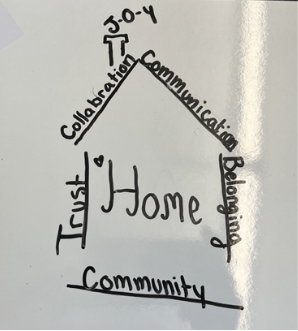 J-O-Y
Collabration
Communication
Trust
Home
Belonging
Community